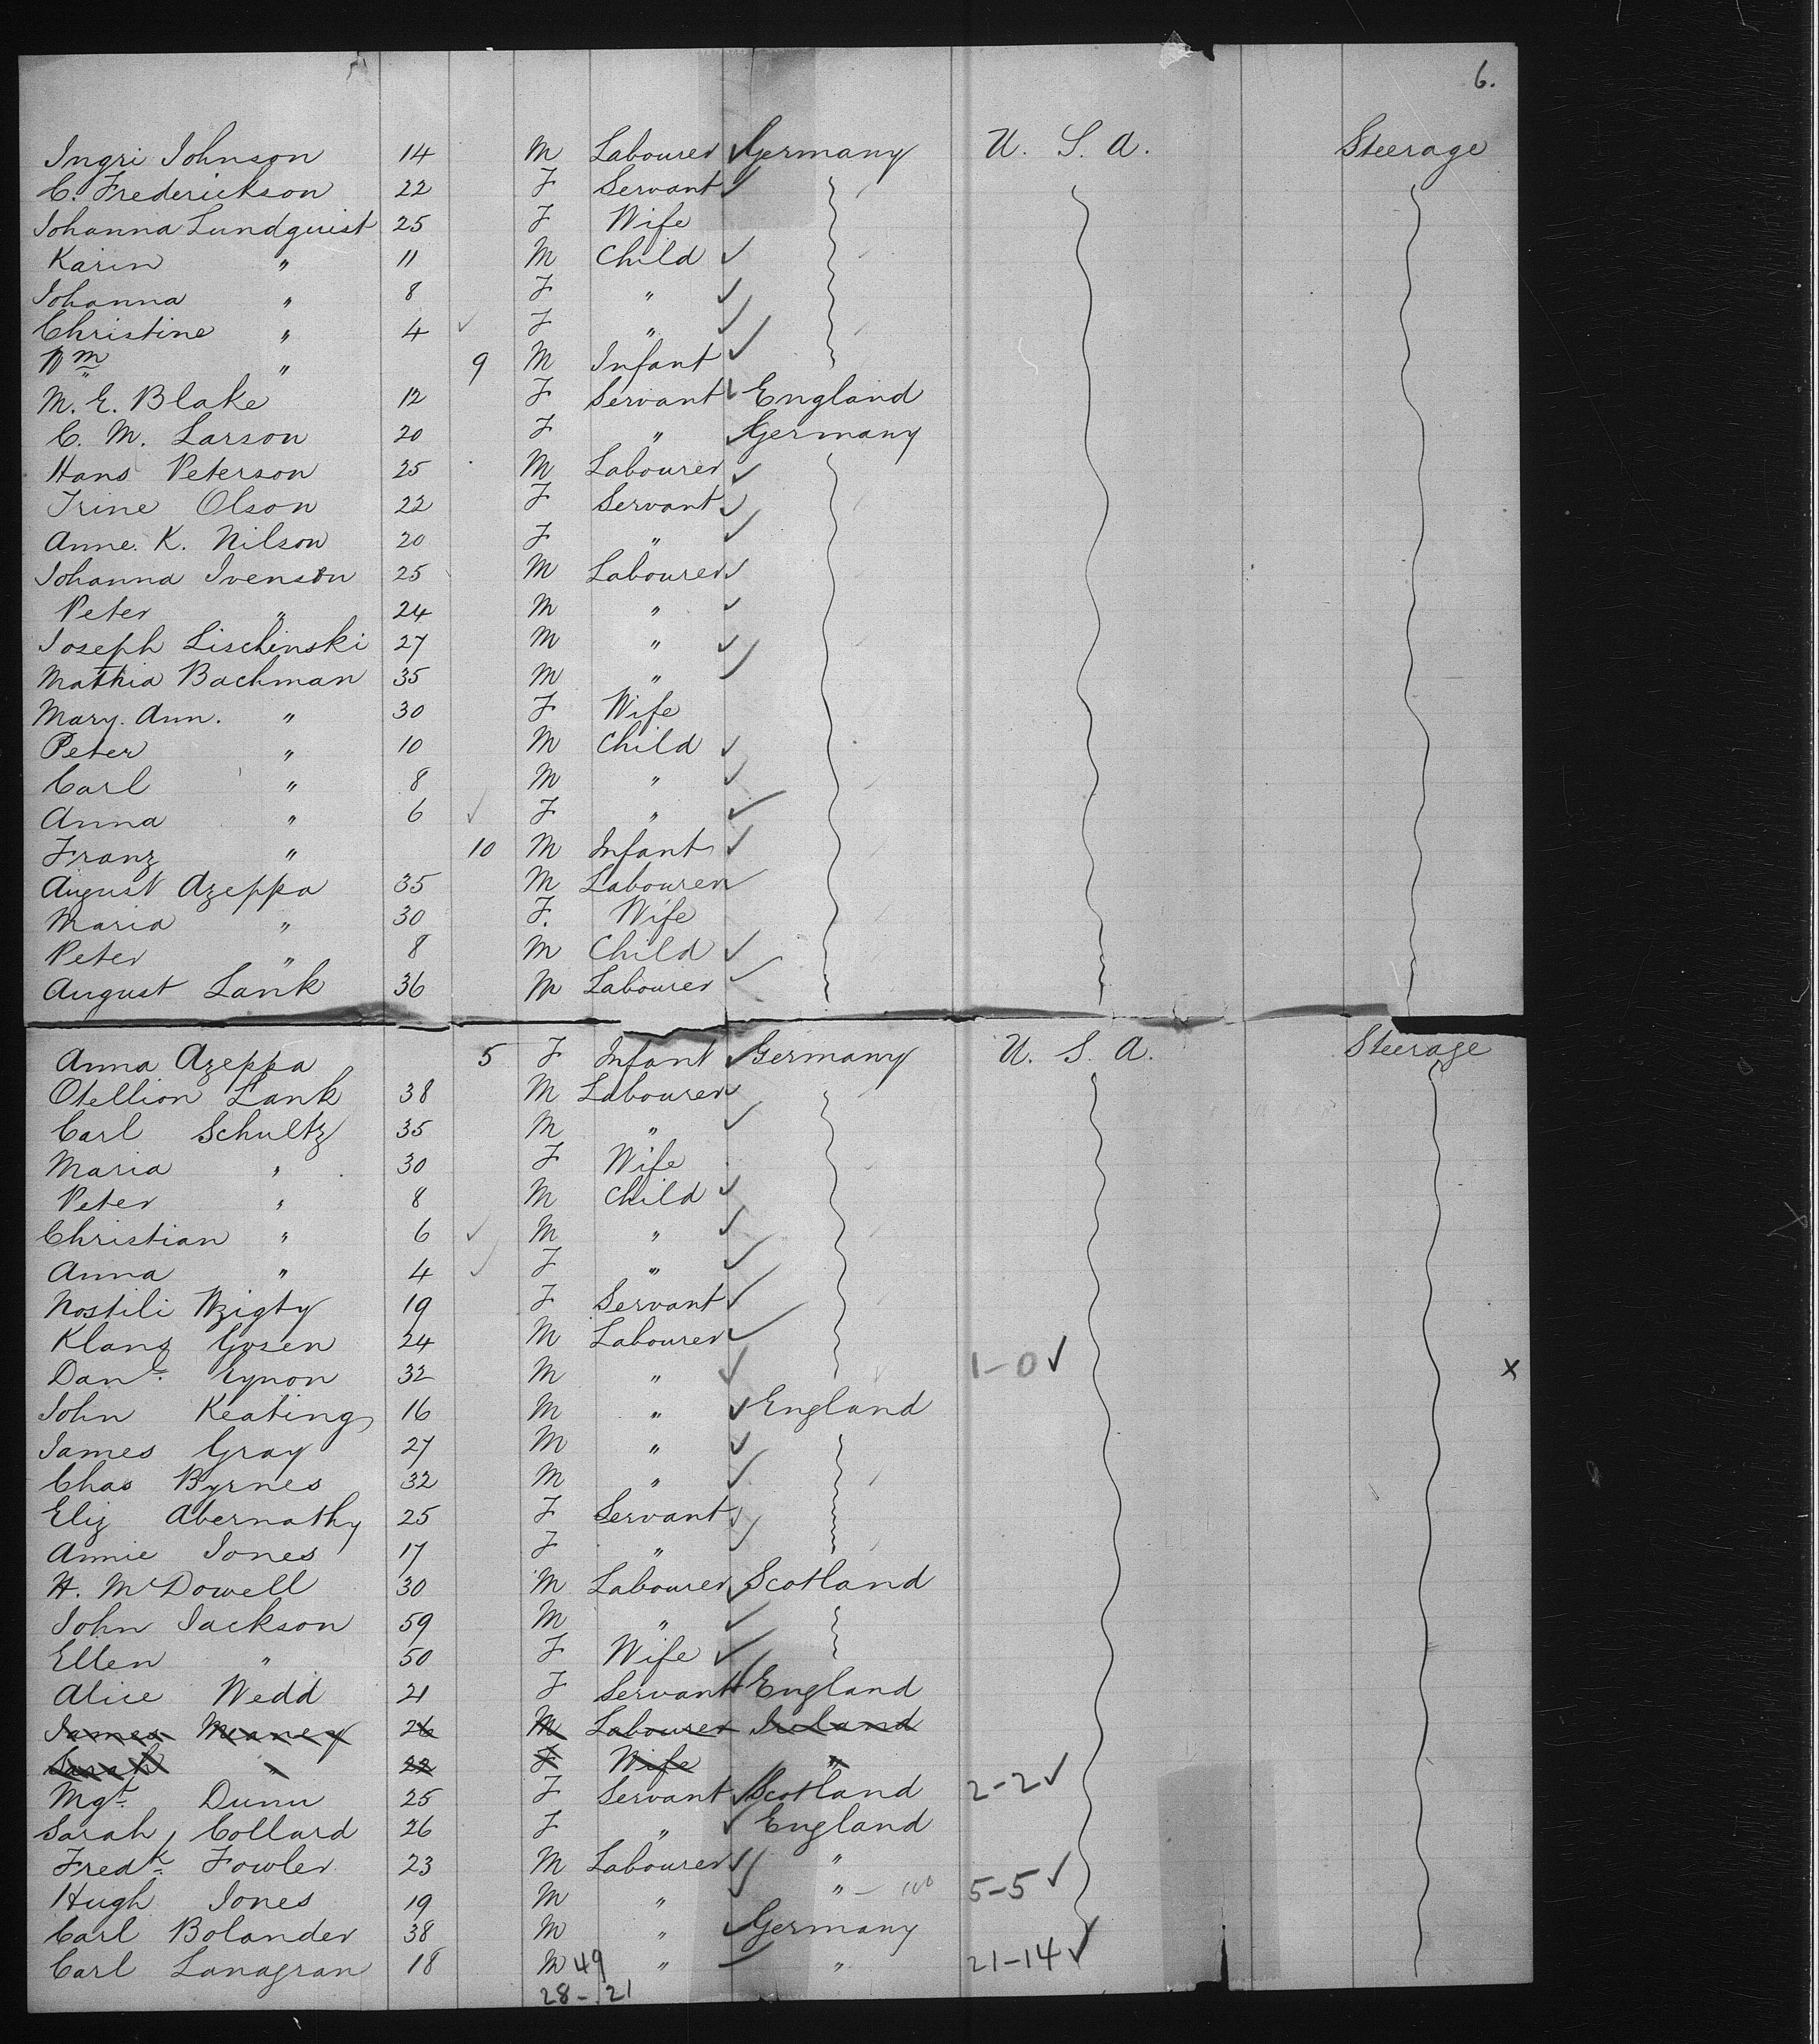 6.
Ingri Johnson 14 M Labourer Germany U. S. A. Steerage
C. Frederickson 22 F Servant
Johanna Lundquist 25 F Wife
Karin " 11 M Child
Johanna " 8 F "
Christine " 4 F "
Wm " 9 M Infant
M. E. Blake 12 F Servant England
C. M. Larson 20 F " Germany
Hans Peterson 25 M Labourer
Trine Olson 22 F Servant
Anne. K. Nilson 20 F "
Johanna Ivenson 25 M Labourer
Peter " 24 M "
Joseph Lischinski 27 M "
Mathia Bachman 35 M "
Mary. Ann. " 30 F Wife
Peter " 10 M Child
Carl " 8 M "
Anna " 6 F "
Franz " 10 M Infant
August Azeppa 35 M Labourer
Maria " 30 F. Wife
Peter " 8 M Child
August Lank 36 M Labourer
Anna Azeppa 5 F Infant Germany U. S. A. Steerage
Otellion Lank 38 M Labourer
Carl Schultz 35 M "
Maria " 30 F Wife
Peter " 8 M Child
Christian " 6 M "
Anna " 4 F "
Nostili Wzigty 19 F Servant
Klans Gosen 24 M Labourer
Danl. Eynon 32 M " 1-0 x
John Keating 16 M " England
James Gray 27 M "
Chas Byrnes 32 M "
Eliz Abernathy 25 F Servant
Annie Jones 17 F "
H. McDowell 30 M Labourer Scotland
John Jackson 59 M "
Ellen " 50 F Wife
Alice Wedd 21 F Servant England
James Meaney 26 M Labourer Ireland
Sarah " 22 F Wife "
Mgt. Dunn 25 F Servant Scotland 2-2
Sarah Collard 26 F " England
Fredk. Fowler 23 M Labourer "
Hugh Jones 19 M " " 5-5
Carl Bolander 38 M " Germany
Carl Lanagran 18 M 49 " " 21-14
28-21